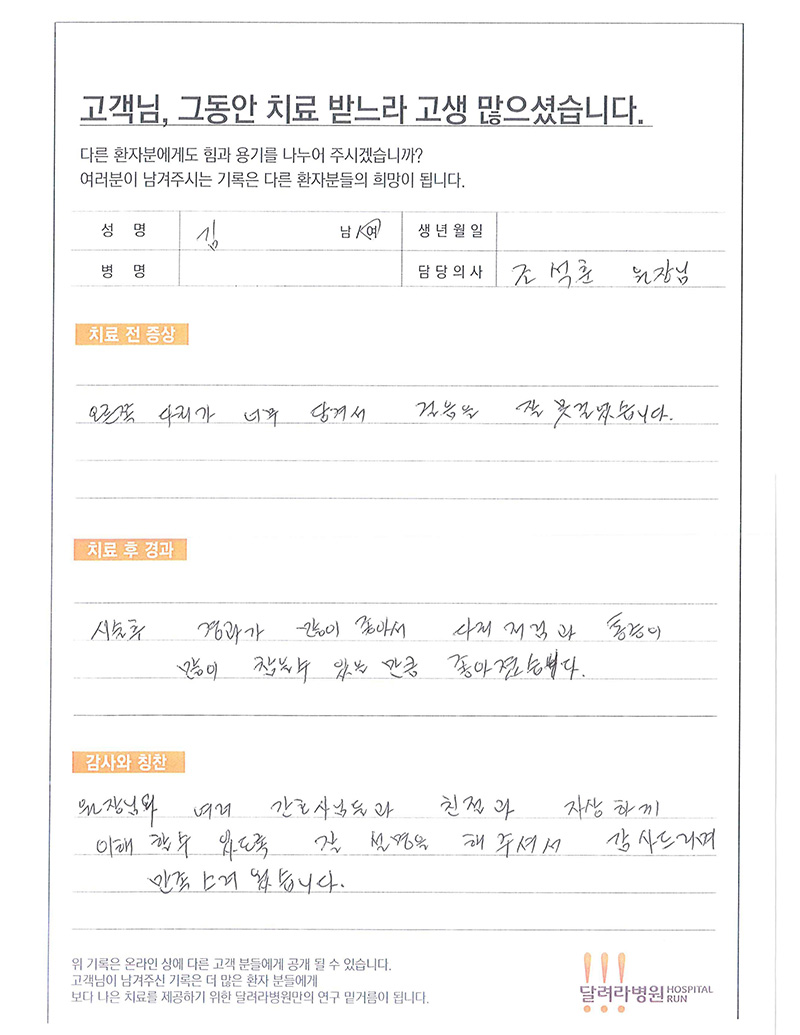 고객님, 그동안 치료 받느라 고생 많으셨습니다.
다른 환자분에게도 힘과 용기를 나누어 주시겠습니까?
여러분이 남겨주시는 기록은 다른 환자분들의 희망이 됩니다.
성 명 김 남/여 생년월일
병 명 담당의사 조석훈 원장님
치료 전 증상
오른쪽 다리가 너무 당겨서 걸음을 잘 못걸었습니다.
치료 후 경과
시술후 경과가 많이 좋아서 다리 저림과 통증이
많이 참을수 있는 만큼 좋아졌습니다.
감사와 칭찬
원장님와 여러 간호사님들과 친절과 자상하게
이해 할수 있도록 잘 설명을 해 주셔서 감사드리며
만족스러웠습니다.
위 기록은 온라인 상에 다른 고객 분들에게 공개 될 수 있습니다.
고객님이 남겨주신 기록은 더 많은 환자 분들에게
보다 나은 치료를 제공하기 위한 달려라병원만의 연구 밑거름이 됩니다.
달려라병원 HOSPITAL RUN